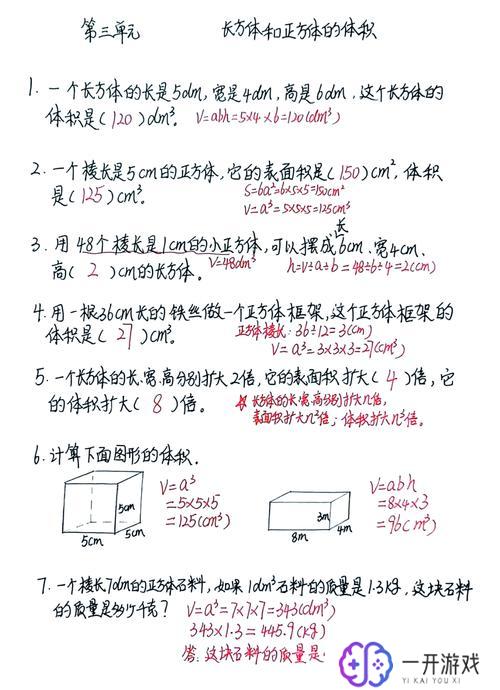 第三单元 长方体和正方体的体积
1. 一个长方体的长是5dm,宽是4dm,高是6dm,这个长方体的
体积是(120)dm³。 V=abh=5×4×6=120(dm³)
2. 一个棱长是5cm的正方体,它的表面积是(150)cm²,体积
是(125)cm³。 S=6a²=6×5×5=150cm²
V=a³=5×5×5=125cm³
3. 用48个棱长是1cm的小正方体,可以摆成长6cm、宽4cm、
高(2)cm的长方体。 V=48dm³ h=V÷a÷b=48÷6÷4=2(cm)
4. 用一根36cm长的铁丝做一个正方体框架,这个正方体框架的
体积是(27)cm³。 正方体棱长:36÷12=3(cm)
V=a³=3×3×3=27(cm³)
5. 一个长方体的长.宽.高分别扩大2倍,它的表面积扩大(4)倍,它
的体积扩大(8)倍。 长方体的长.宽.高分别扩大n倍,
表面积扩大n²倍,体积扩大n³倍。
6. 计算下面图形的体积.
V=a³
=5×5×5
=125(cm³)
5cm
5cm
5cm
V=abh
=8×4×3
=96(m³)
3m
4m
8m
7. 一个棱长7dm的正方体石料,如果1dm³石料的质量是1.3kg,这块石料
的质量是多少千克? V=a³=7×7×7=343(dm³)
343×1.3=445.9(kg)
答:这块石料的质量是
一开游戏
YI KAI YOU XI